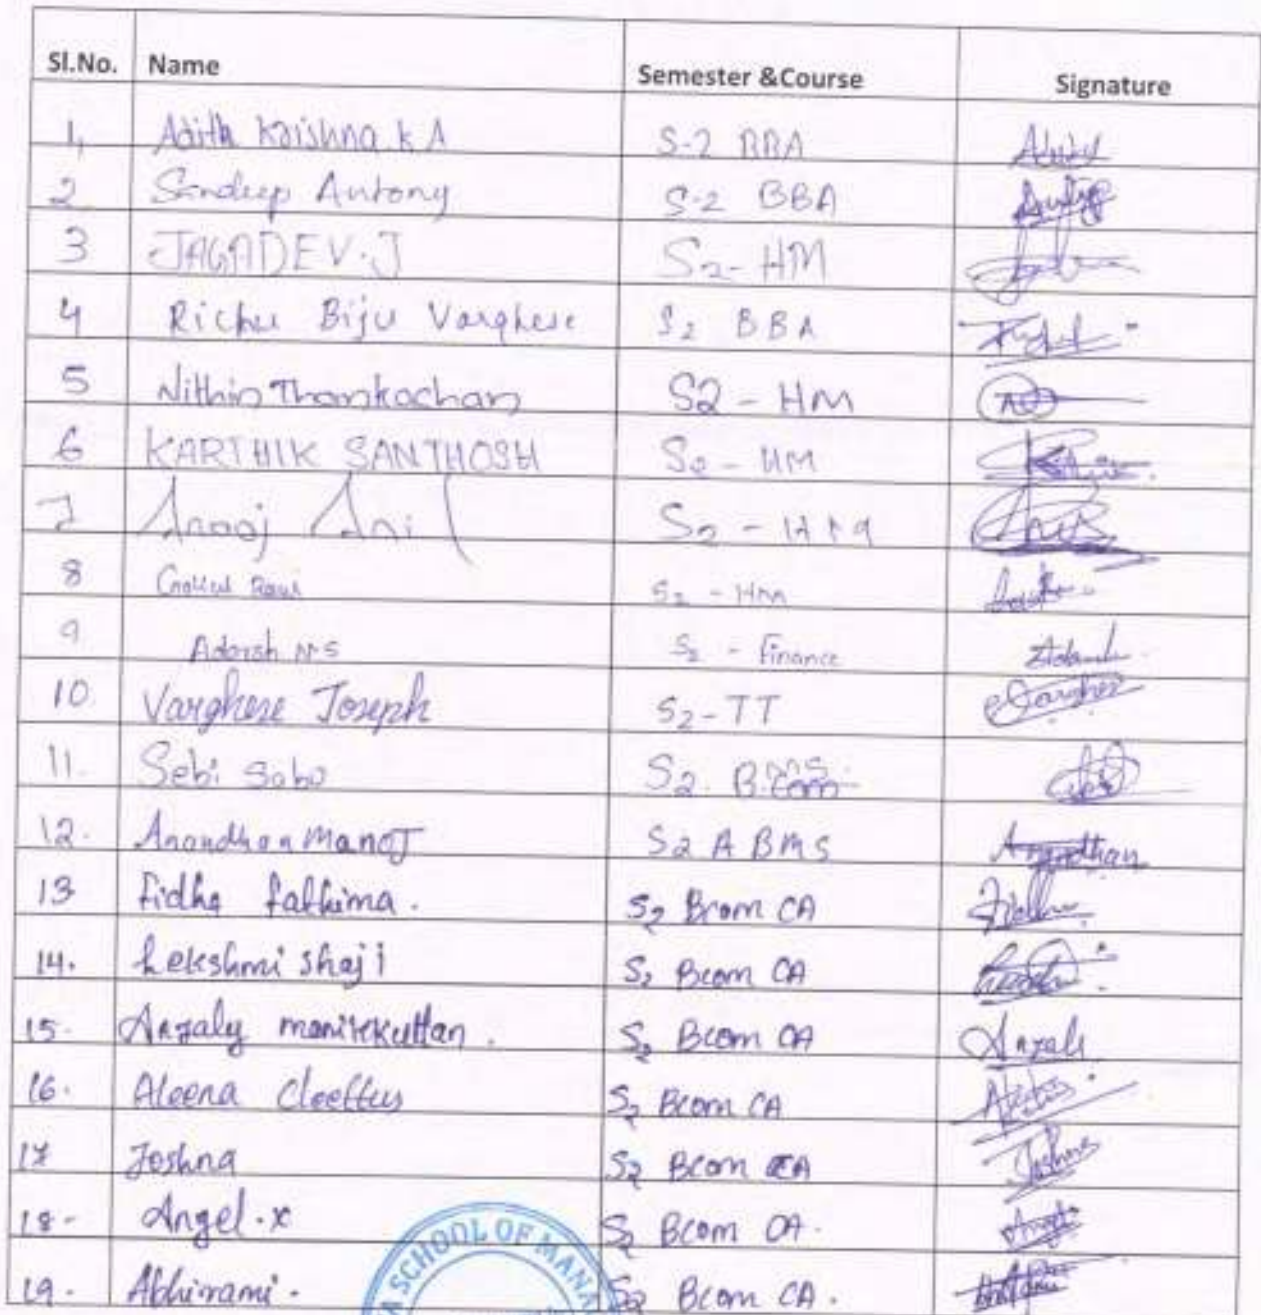 Sl.No. Name Semester &Course Signature
1, Adith Krishna K A S-2 BBA
2 Sandeep Antony S-2 BBA
3 JAGADEV.J S2-HM
4 Richu Biju Varghese S2 BBA
5 Nithin Thankachan S2 - HM
6 KARTHIK SANTHOSH S2 - HM
7 Anooj Anil S2 -
8 S2 - HM
9 Adarsh S2 - Finance
10. Varghese Joseph S2-TT Varghese
11. Sebi Sabo S2. B.com ms.
12. Anandhan Manoj S2 A BMS Anandhan
13 Fidha fathima. S2 Bcom CA
14. Lekshmi shaji S2 Bcom CA
15. Anzaly manikkuttan. S2 Bcom CA Anzaly
16. Aleena Cleettus S2 Bcom CA
17 Joshna S2 Bcom CA Joshna
18- Angel.x S2 Bcom CA. Angel
19. Abhirami. S2 Bcom CA.
SCHOOL OF MANA